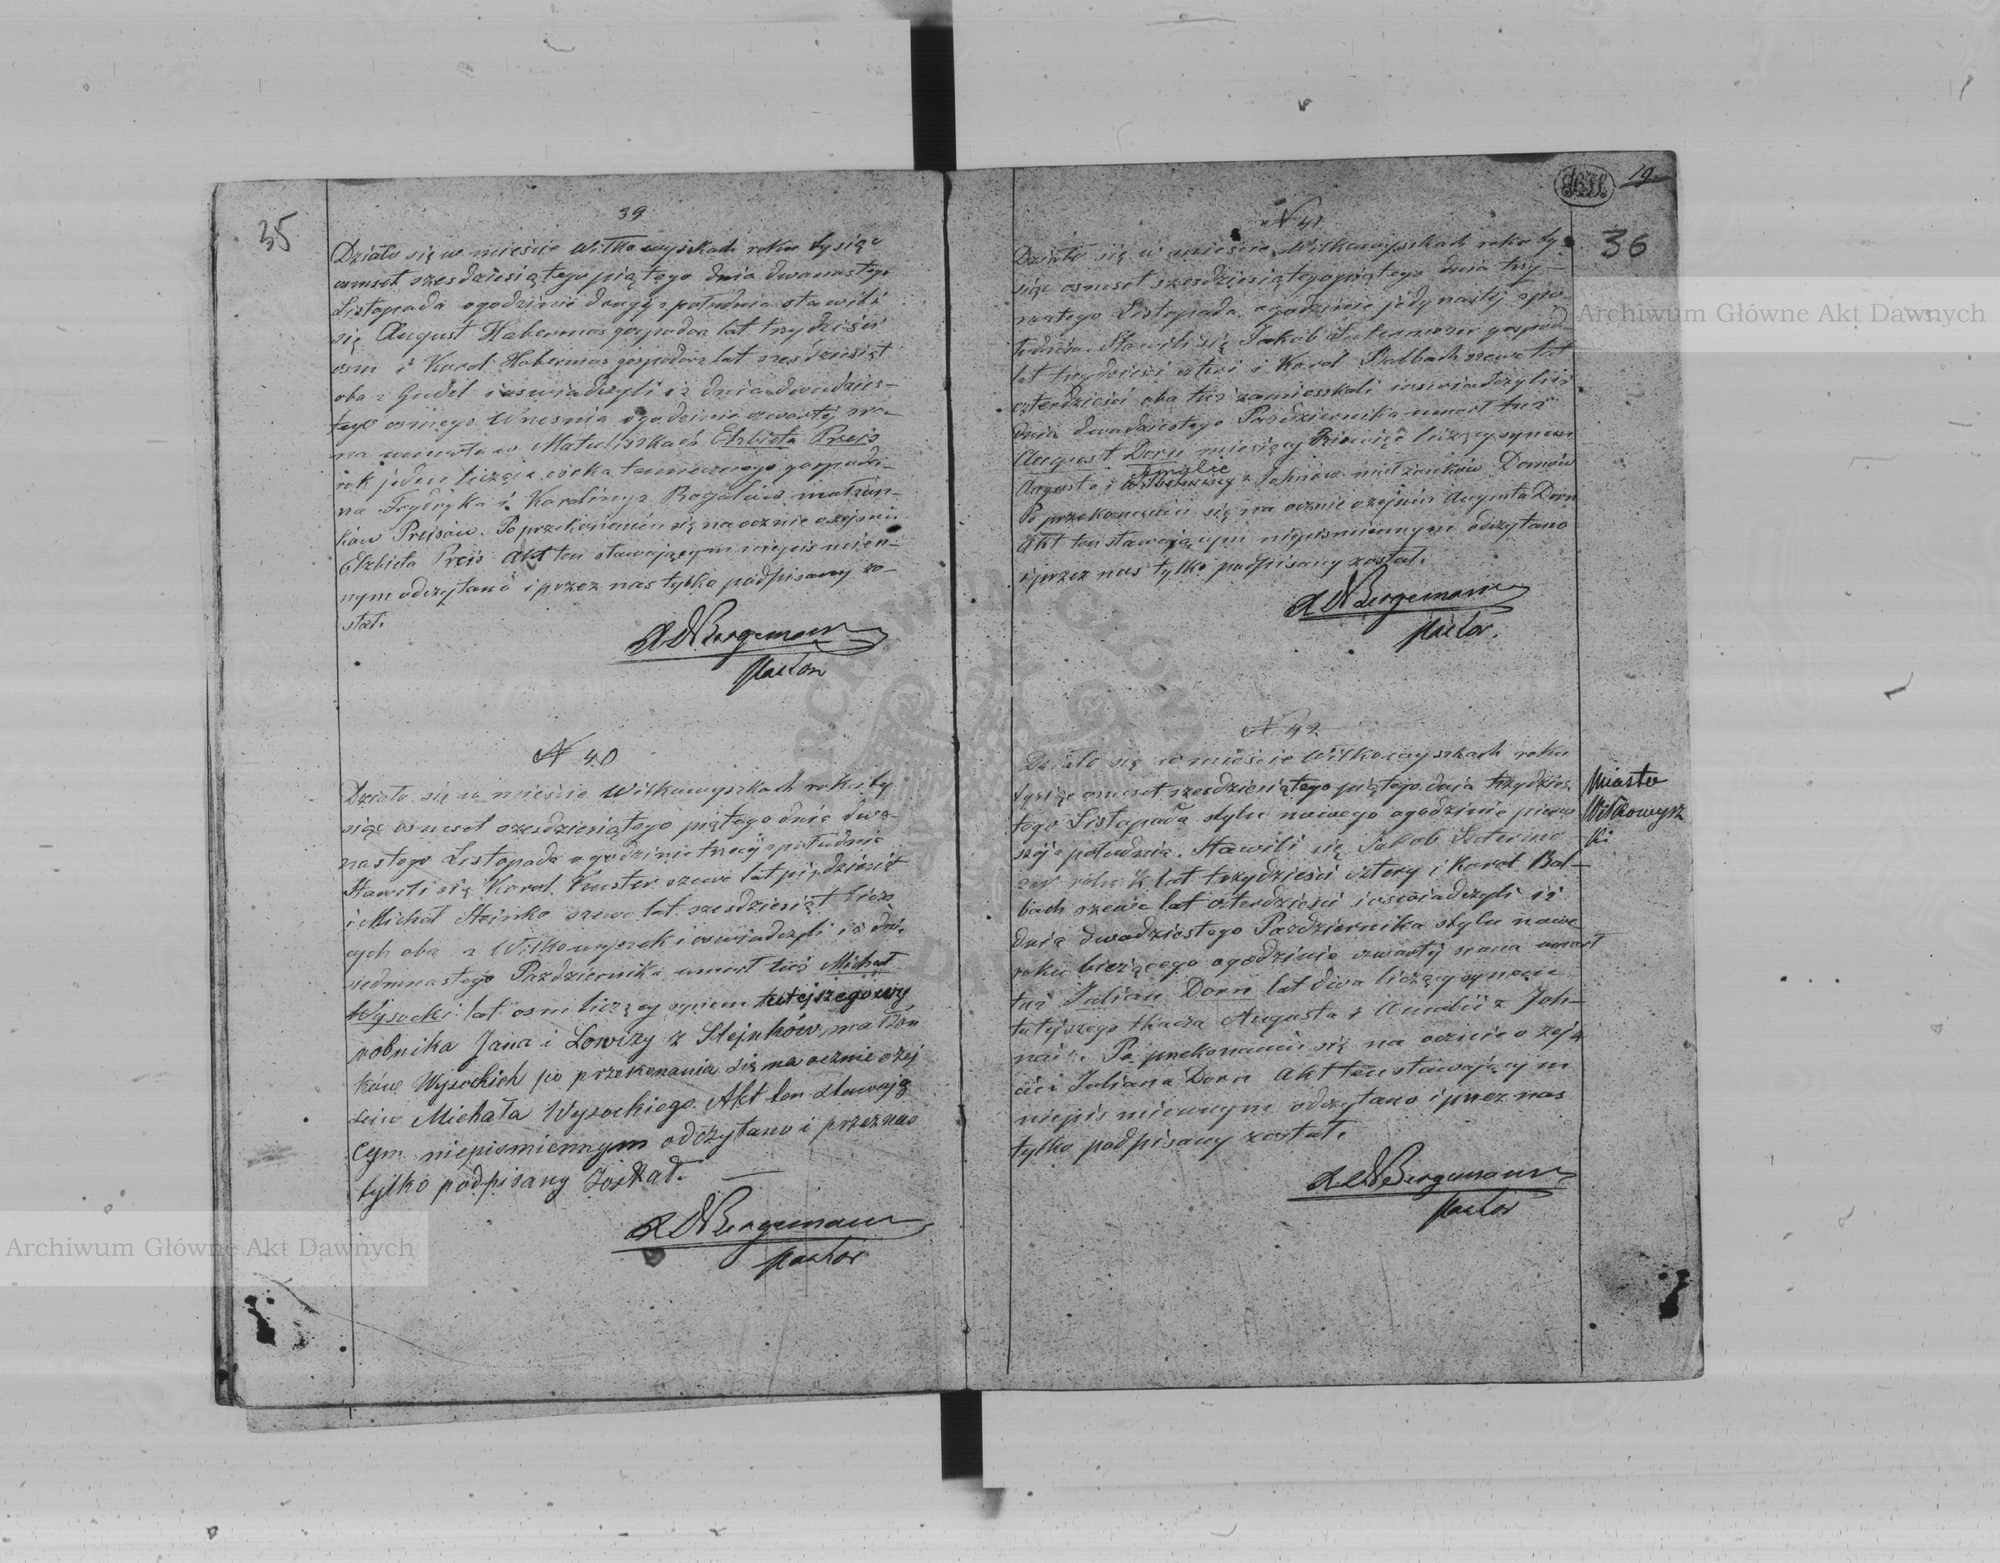 35
39
Działo się w mieście Wiłkowyszkach roku tysiąc
osmset szesdziesiątego piątego dnia dwunastego
Listopada o godzinie drugiej z południa stawili
się August Habermas gospodarz lat trzydzieści
osm i Karol Habermas gospodarz lat szesdziesiąt
oba z Gudel i oswiadczyli iż dnia dwudzies-
tego osmego Wrzesnia o godzinie czwartej zra-
na umarła w Matuliszkach Elzbieta Preis
rok jeden licząca córka tamecznego gospoda-
na Frydryka i Karoliny z Rogalów małżon-
ków Prejsów. Po przekonaniu się na ocznie o zejsciu
Elzbieta Preis Akt ten stawającym niepismien-
nym odczytano i przez nas tylko podpisany zo-
stał.
Bergemann
Pastor
N 40
Działo się w mieście Wiłkowyszkach roku ty
siąc osmset szesdziesiątego piątego dnia dwu-
nastego Listopada o godzinie trzeciej z południa
Stawili się Karol szewc lat piędziesiąt
i Michał Steinko szewc lat szesdziesiąt licz
cych oba z Wiłkowyszek i oswiadczyli iż dnia
siedmnastego Pazdziernika umarł tuż Michał
Wysocki lat osm liczący synem tutejszego wy
robnika Jana i Lowizy z Stejnków małżon
ków Wysockich po przekonaniu się na ocznie o zej
sciu Michała Wysockiego Akt ten stawają
cym niepismiennym odczytano i przez nas
tylko podpisany Został.
Bergemann
Pastor
19
N 41
36
Działo się w mieście Wiłkowyszkach roku ty-
siąc osmset szesdziesiątego piątego dnia trzy-
nastego Listopada o godzinie jedynastej z po-
łudnia. Stawili się Jakob gospod
lat trzydzieści cztery i Karol Balbach szewc lat
czterdzieści oba tuż zamieszkali i oswiadczyli iż
dnia dwudziestego Pazdziernika umarł tuż
August Dorn miesięcy Dziewięć liczący synem
Amalie
Augusta i z Johnów małżonków Dornów
Po przekonaniu się na ocznie o zejsciu Augusta Dorn
Akt ten stawającym niepismiennym odczytano
i przez nas tylko podpisany został.
Bergemann
Pastor.
N 42
Działo się w mieście Wiłkowyszkach roku
tysiąc osmset szesdziesiątego piątego dnia trzydzies
tego Listopada stylu nowego o godzinie pierw
szej z południa. Stawili się Jakob
rolnik lat trzydzieści cztery i Karol Bal-
bach szewc lat czterdzieści i oswiadczyli iż
dnia dwudziestego Pazdziernika stylu nowe
roku bieżącego o godzinie czwartej zrana umarł
tuż Julian Dorn lat dwa liczący synem
tutejszego tkacza Augusta i Amalii z Joh-
nów. Po przekonaniu się na ocznie o zejs
ciu Juliana Dorn Akt ten stawającym
niepismiennym odczytano i przez nas
tylko podpisany został.
Bergemann
Pastor
Miasto
Wiłkowysz
ki
Archiwum Główne Akt Dawnych
Archiwum Główne Akt Dawnych